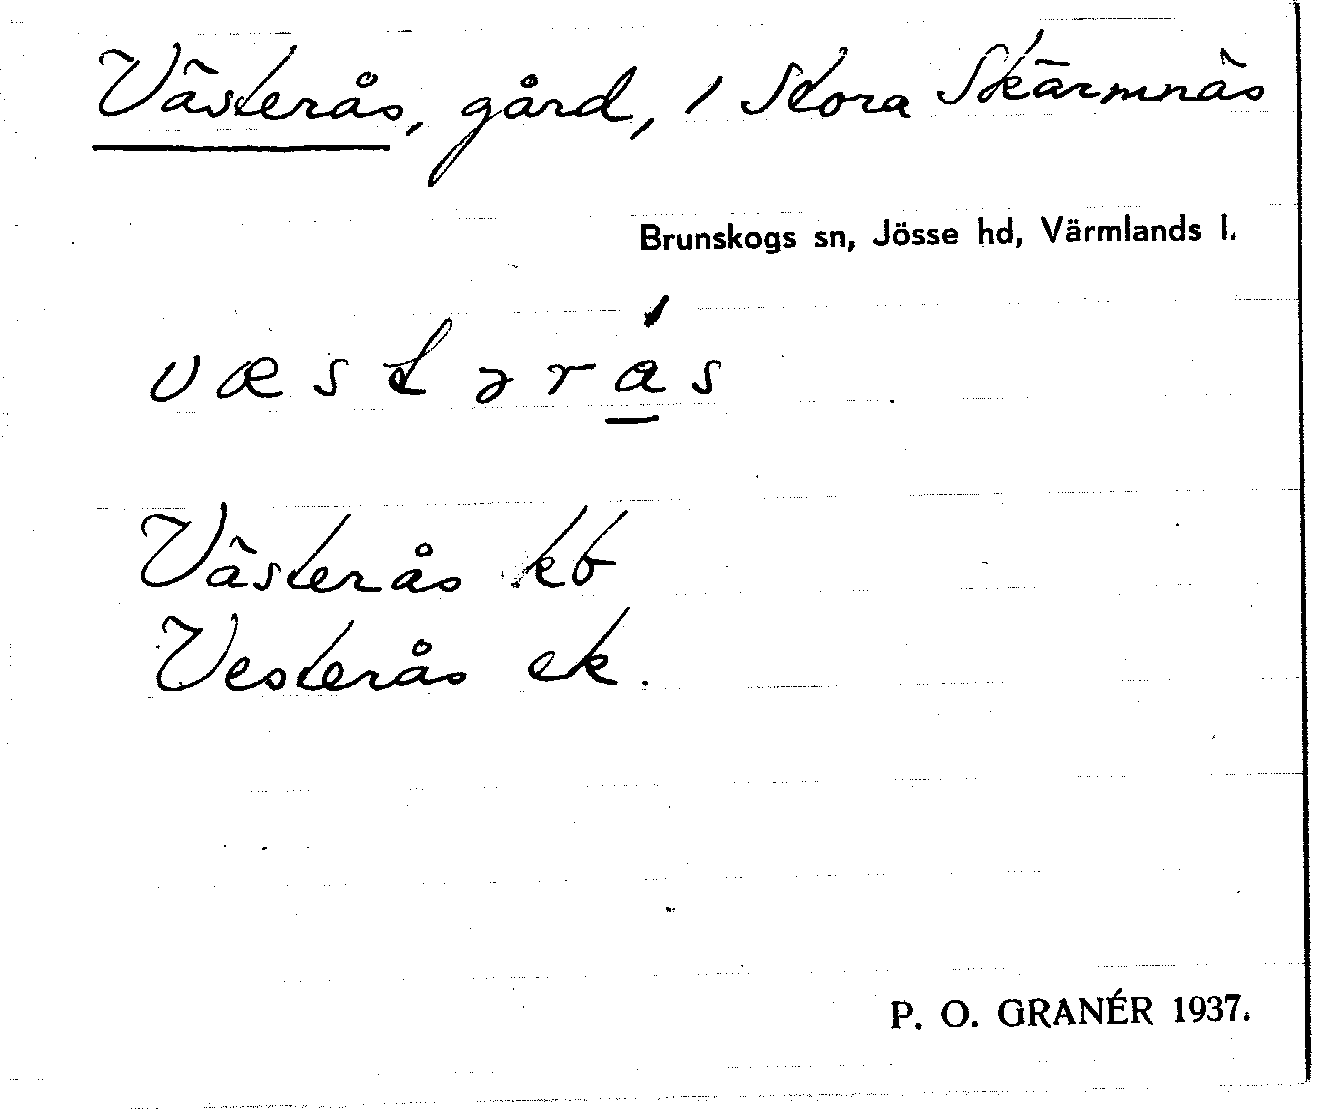 Västerås, gård, i Stora Skärmnäs
Brunskogs sn, Jösse hd, Värmlands l.
væstərás
Västerås kb
Vesterås ek.
P. O. GRANÉR 1937.